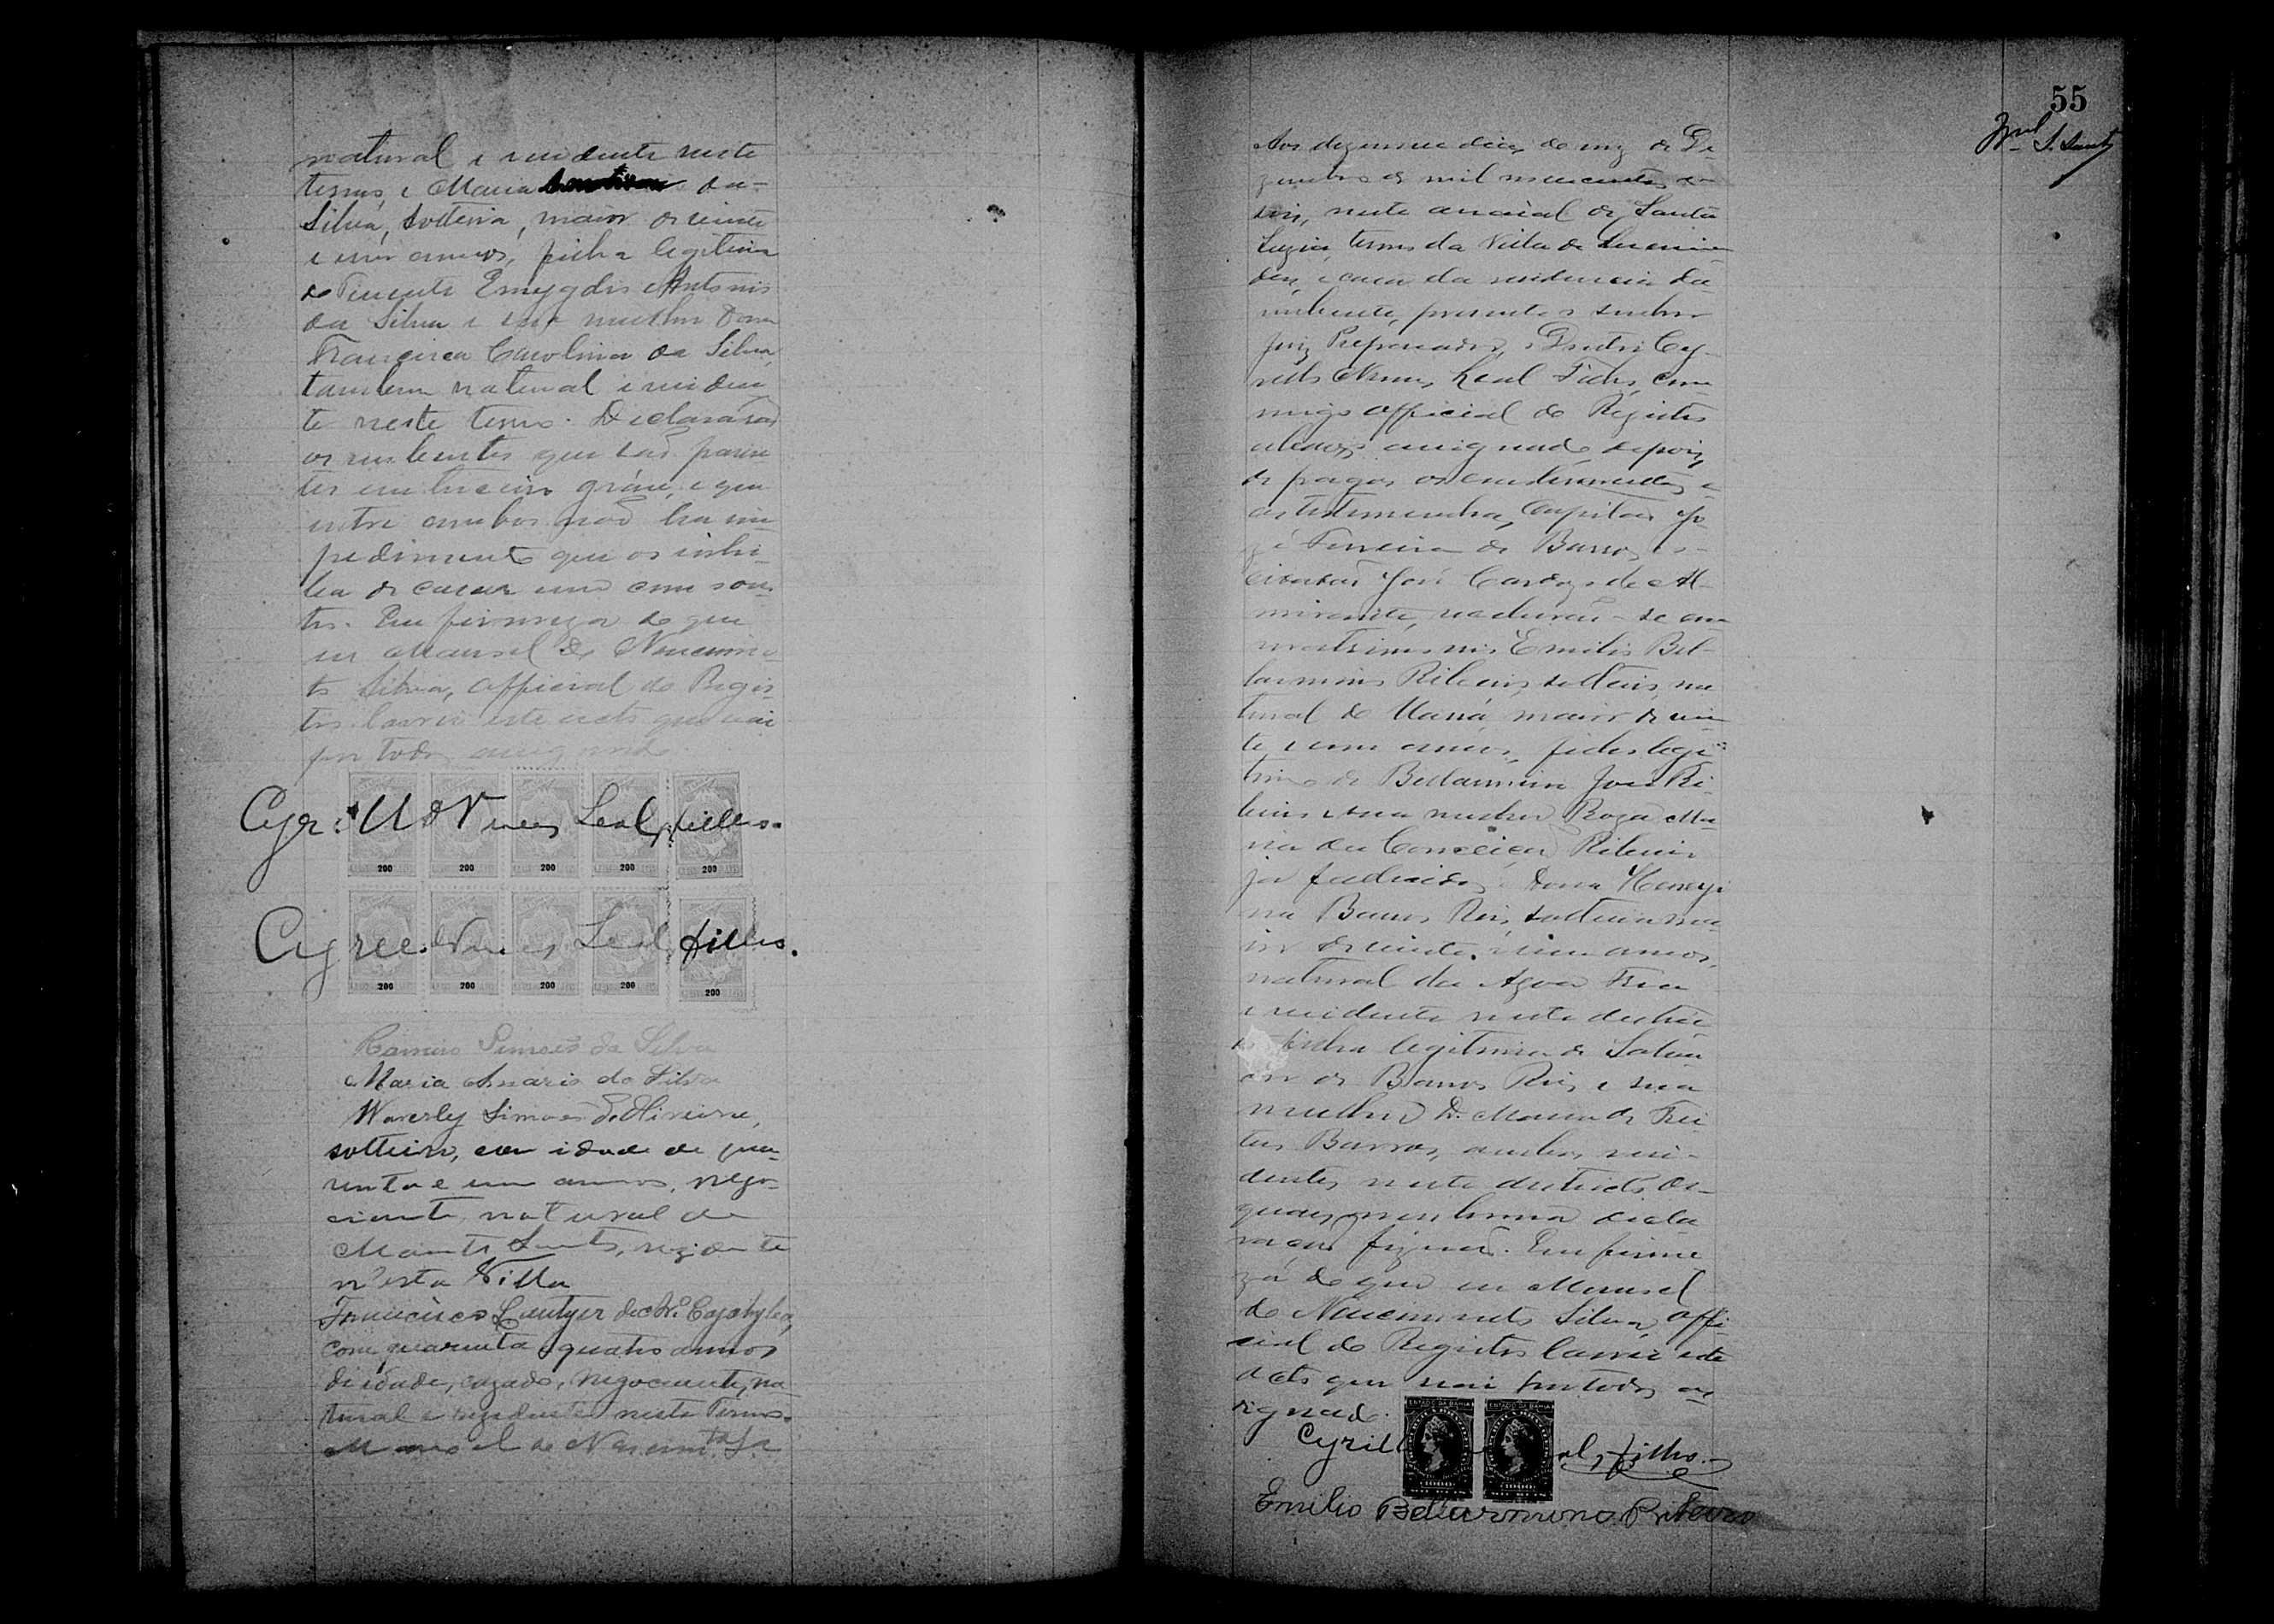 natural e residente neste
termo, e Maria da
Silva, solteira, maior de vinte
e um annos, filha legitima
do Tenente Emygdio Antonio
da Silva e sua mulher Dona
Francisca Carolina da Silva,
tambem natural e residen
te neste termo. Declararão
os nubentes que são paren
tes em terceiro gráu, e que
entre ambos não ha im
pedimento que os inhi
ba de casar um com ou
tro. Em firmeza do que
eu Manoel do Nascimen
to Silva, official do Regis
tro lavrei este acto que vai
por todos assignado
Cyrillo Nunes Leal, filho.
200 200 200 200 200
Cyrillo Nunes Leal, filho.
200 200 200 200 200
Ramiro Simões da Silva
Maria da Silva
Waverly Simões d'Oliveira,
solteiro, com idade de qua
renta e um annos, nego
ciante, natural de
Monte Santo, rezidente
n'esta Villa
Francisco
com quarenta e quatro annos
de idade, cazado, negociante, na
tural e rezidente neste Termo.
Manoel do Nascimto Sa
55
Aos dezenove dias do mez de De
zembro de mil novecentos e
seis, neste arraial de Santa
Luzia, termo da Villa de
caza da residencia da
nubente, presente o senhor
Juiz Preparador, Doutor Cy
rillo Nunes Leal Filho, com
migo official do Registro
abaixo assignado, depois
de pagos os emolumentos e
as testemunhas, Capitão Jo
zé Ferreira de Barros e o
cidadão José Cardozo de Al
mirante, receberão-se em
matrimonio Emilio Bel
larmino Ribeiro, solteiro, na
tural de Uauá, maior de vin
te e um annos, filho legi
timo de Bellarmino José Ri
beiro e sua mulher Roza Ma
ria da Conceição Ribeiro
já fallecidos, e Dona
Barros Reis, solteira, ma
ior de vinte e um annos,
natural da Agua Fria
e residente neste distric
to, filha legitima de
de Barros Reis e sua
mulher D. Maria de Frei
tas Barros, ambos resi
dentes neste districto. Os
quaes nenhuma decla
ração fizerão. Em firme
za do que eu Manoel
do Nascimento Silva, offi
cial do Registro lavrei este
acto que vai por todos as
signado.
Cyrillo al, filho.
Emilio Bellarmino Ribeiro